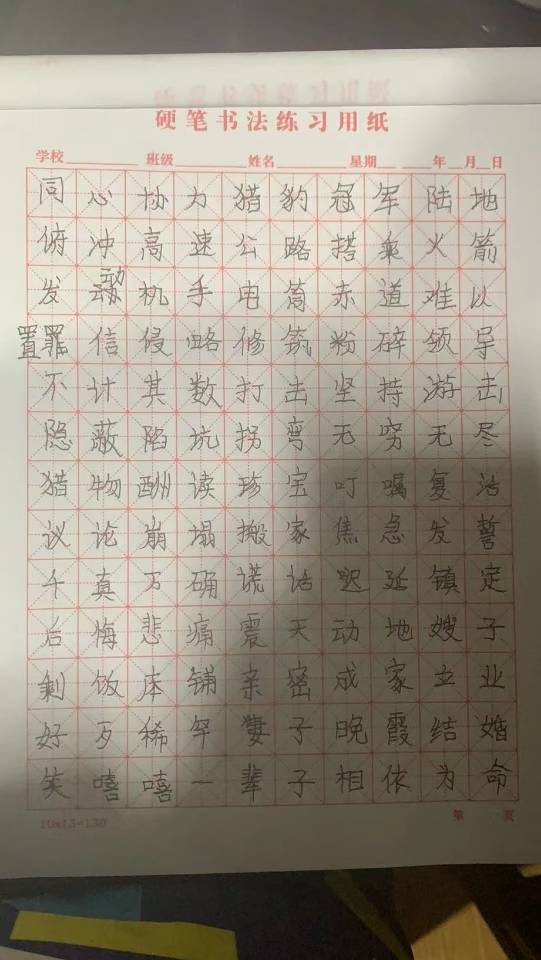 硬笔书法练习用纸
学校 班级 姓名 星期 年 月 日
同心协力猎豹冠军陆地
俯冲高速公路搭乘火箭
发动机手电筒赤道难以
置罪信侵略修筑粉碎领导
不计其数打击坚持游击
隐蔽陷坑拐弯无穷无尽
猎物酬读珍宝叮嘱复活
议论崩塌搬家焦急发誓
千真万确谎话迟延镇定
后悔悲痛震天动地嫂子
剩饭床铺亲密成家立业
好歹稀罕妻子晚霞结婚
笑嘻嘻一辈子相依为命
10x13=130 第 页